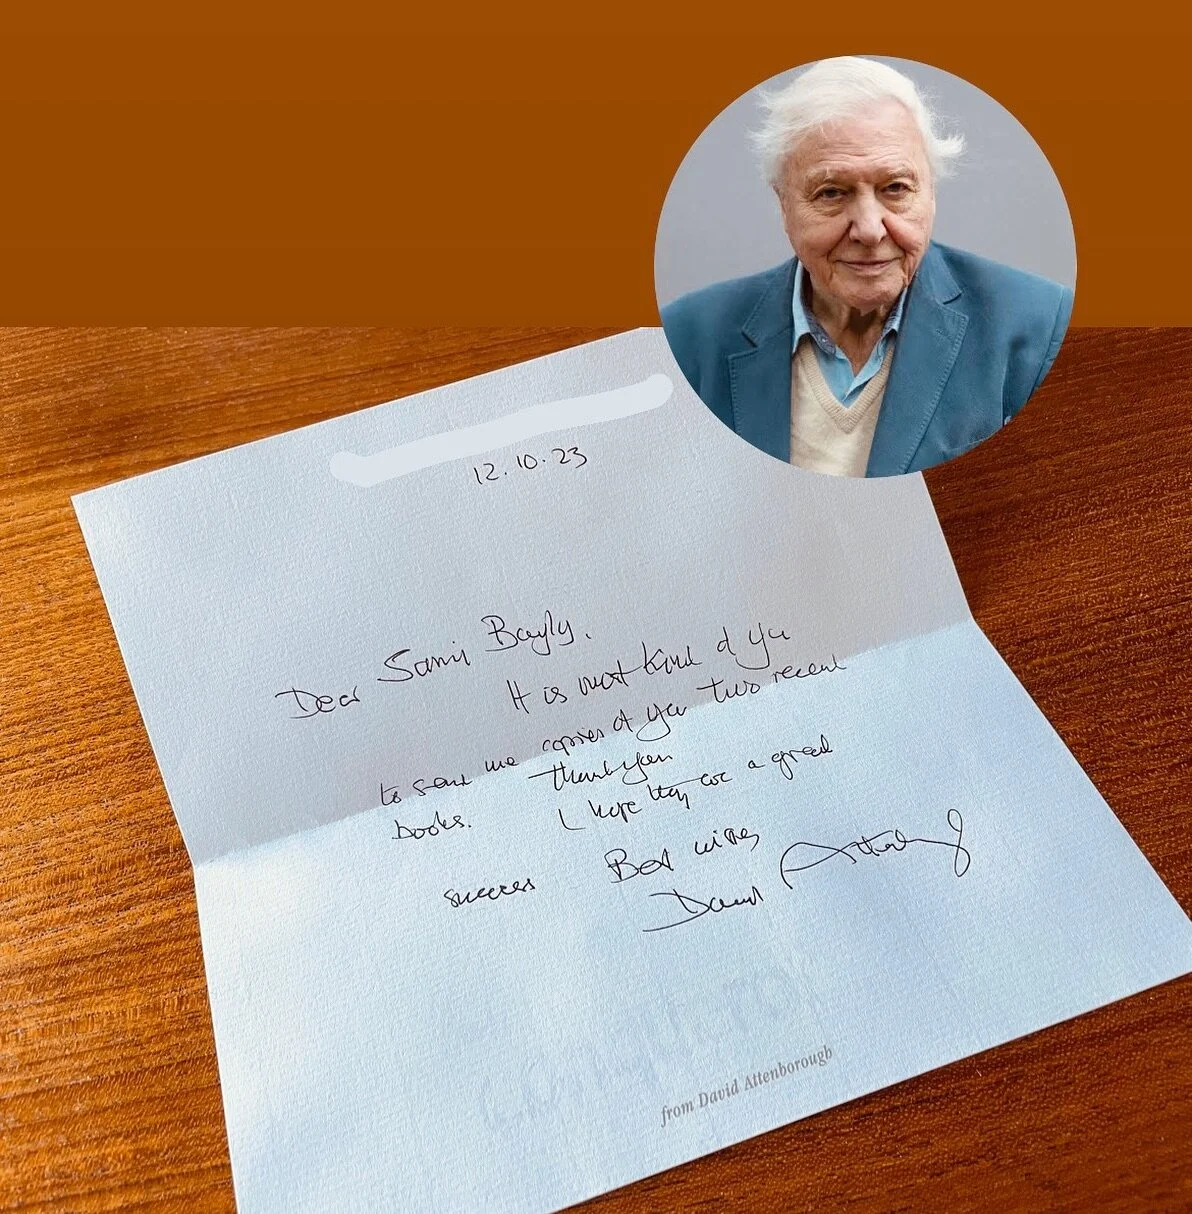 12.10.23
Dear Sami Bayly,
It is most kind of you
to send me copies of your two recent
books. Thank you
I hope they are a great
success
Best wishes
David Attenborough
from David Attenborough